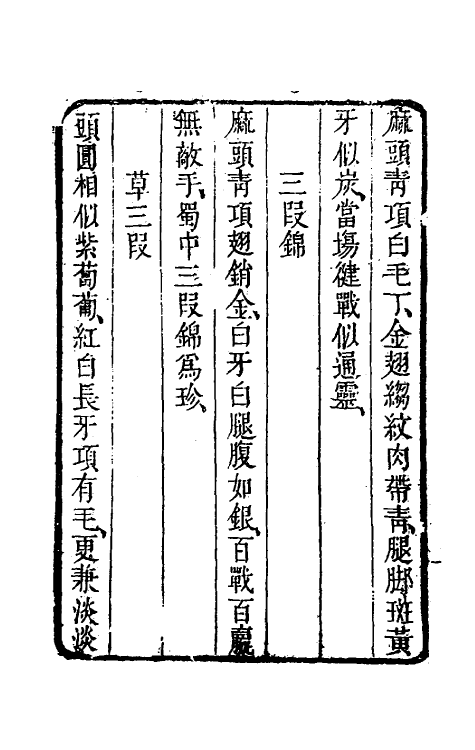 麻頭青項白毛丁、金翅縐紋肉帶青、腿脚斑黃
牙似炭、當場健戰似通靈、
三段錦
麻頭青項翅銷金、白牙白腿腹如銀、百戰百贏
無敵手、蜀中三段錦爲珍、
草三段
頭圓相似紫萄葡、紅白長牙項有毛、更兼淡淡